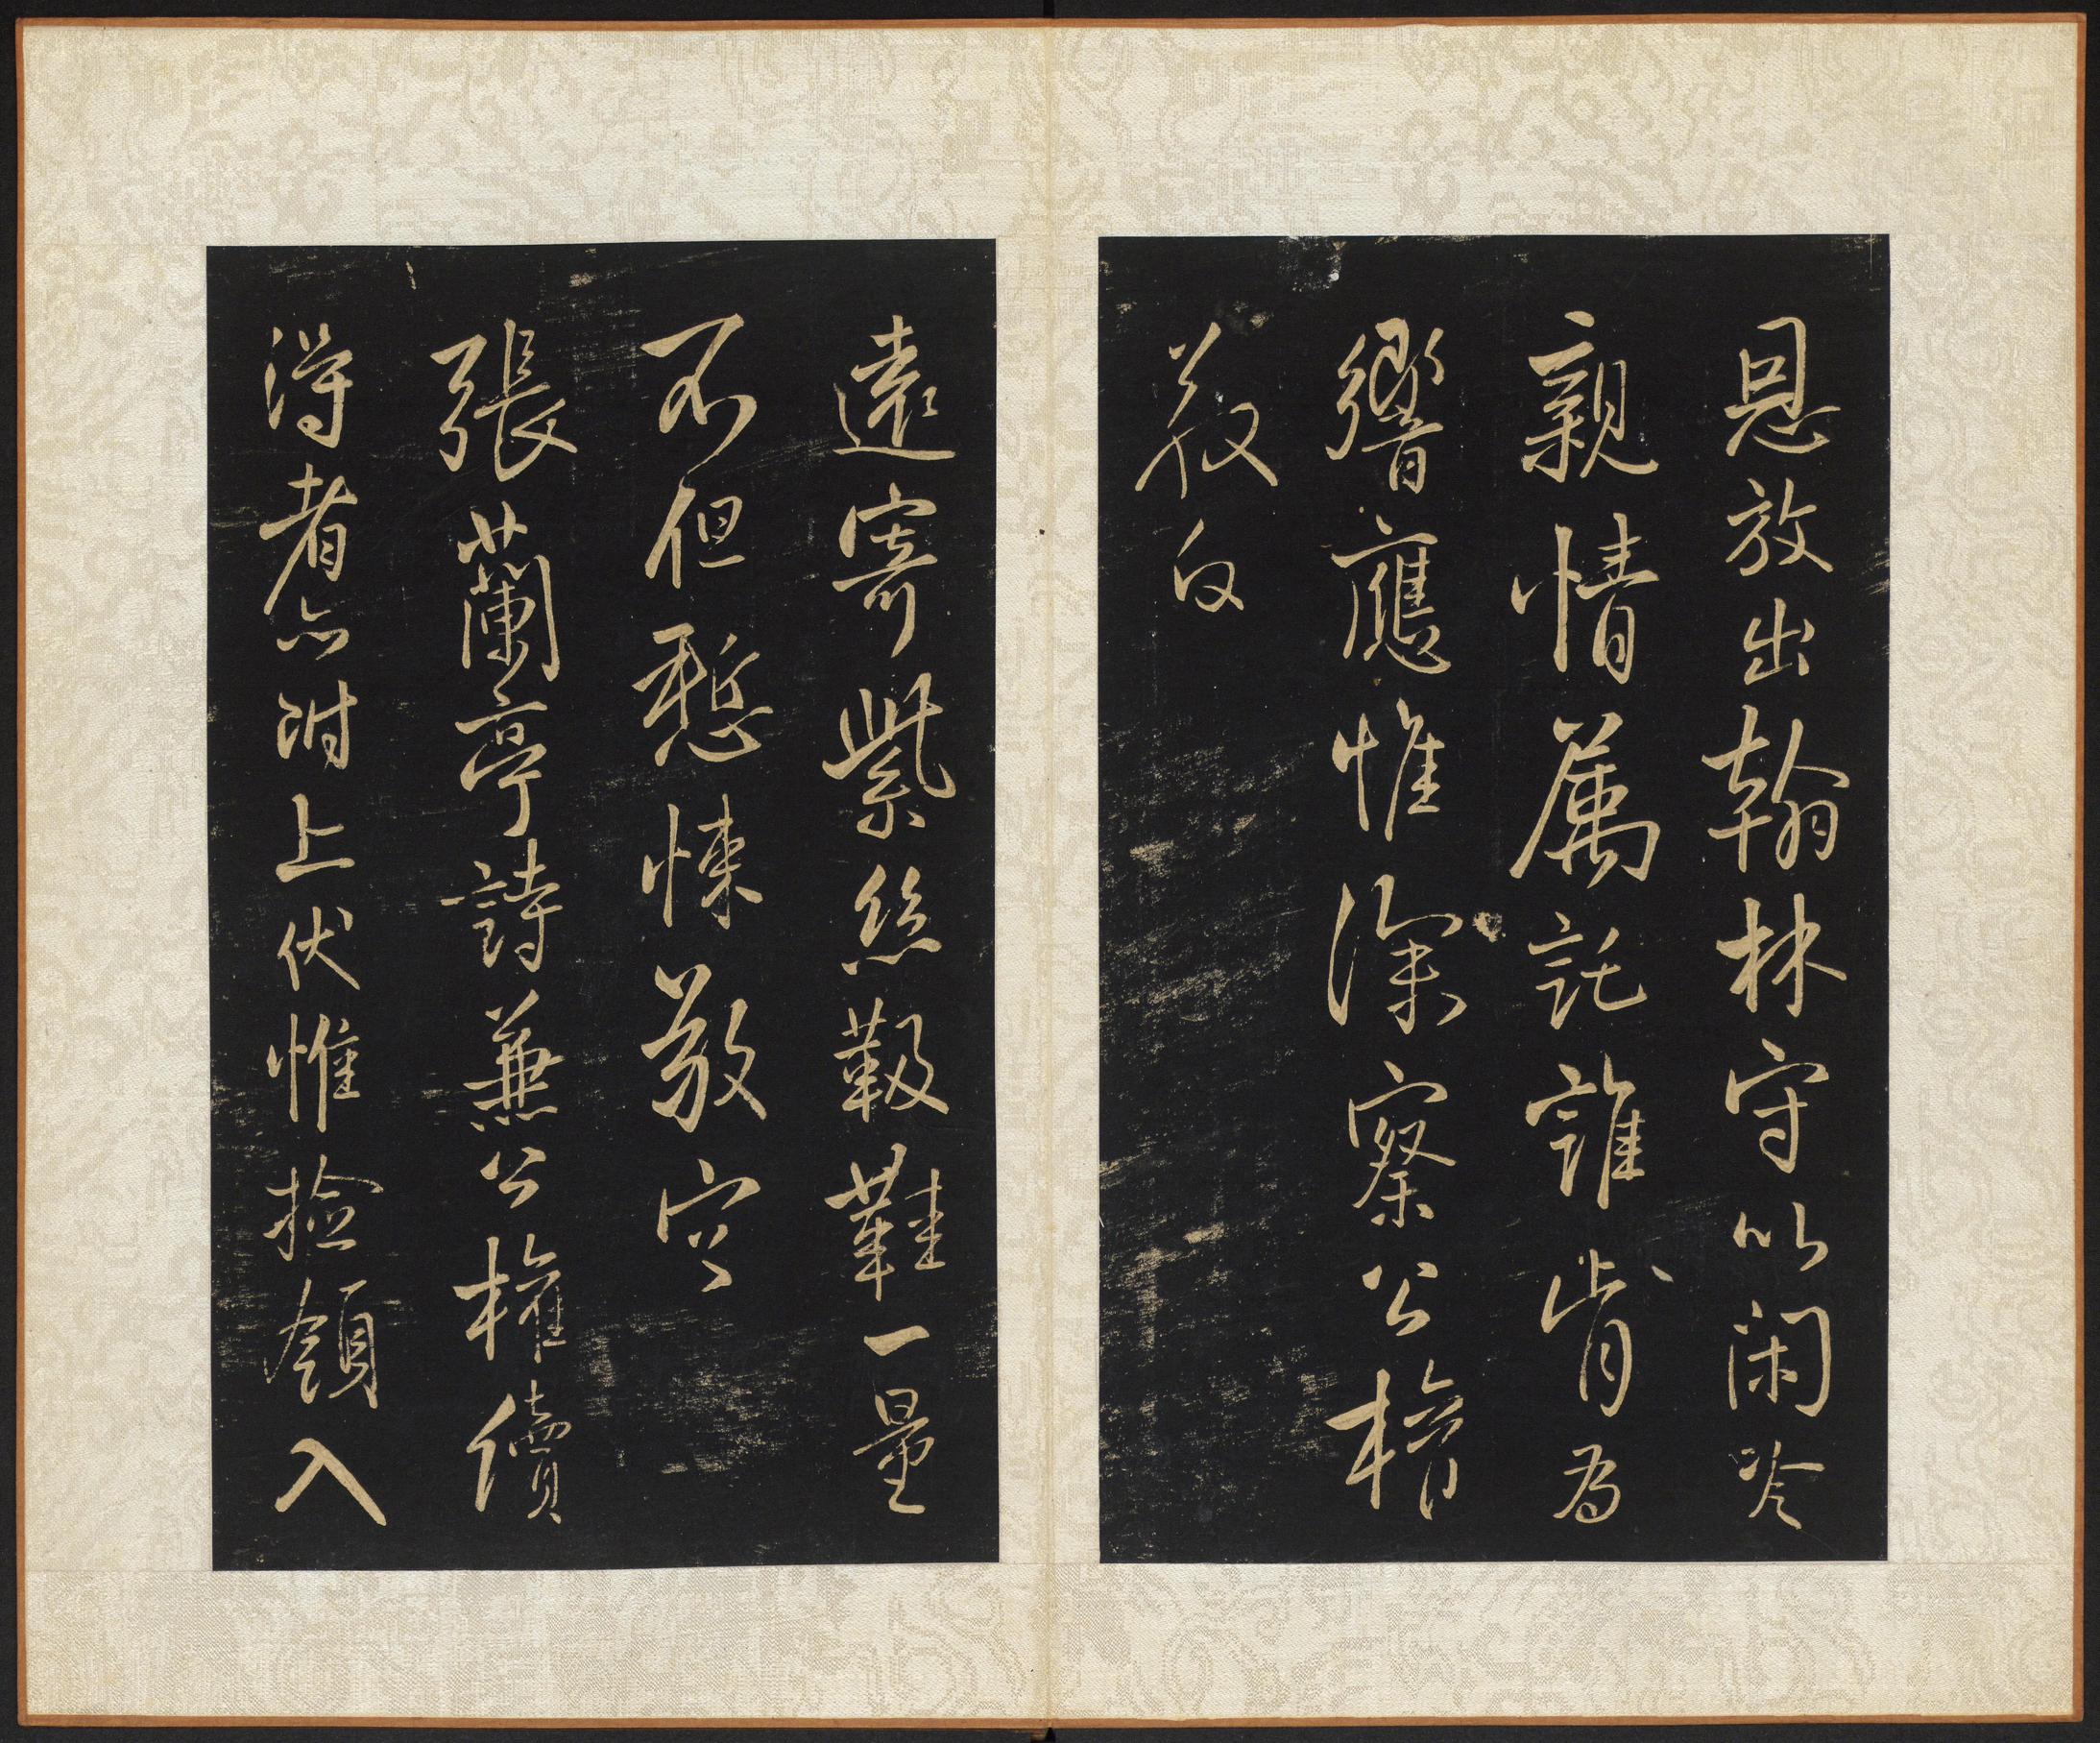 恩放出翰林守以閑冷
親情属託誰肯為
響應惟深察公權
敬白
遠寄紫絲靸鞋一量
不但慙悚敬空
張蘭亭詩兼公權續
得者亦附上伏惟捡領入